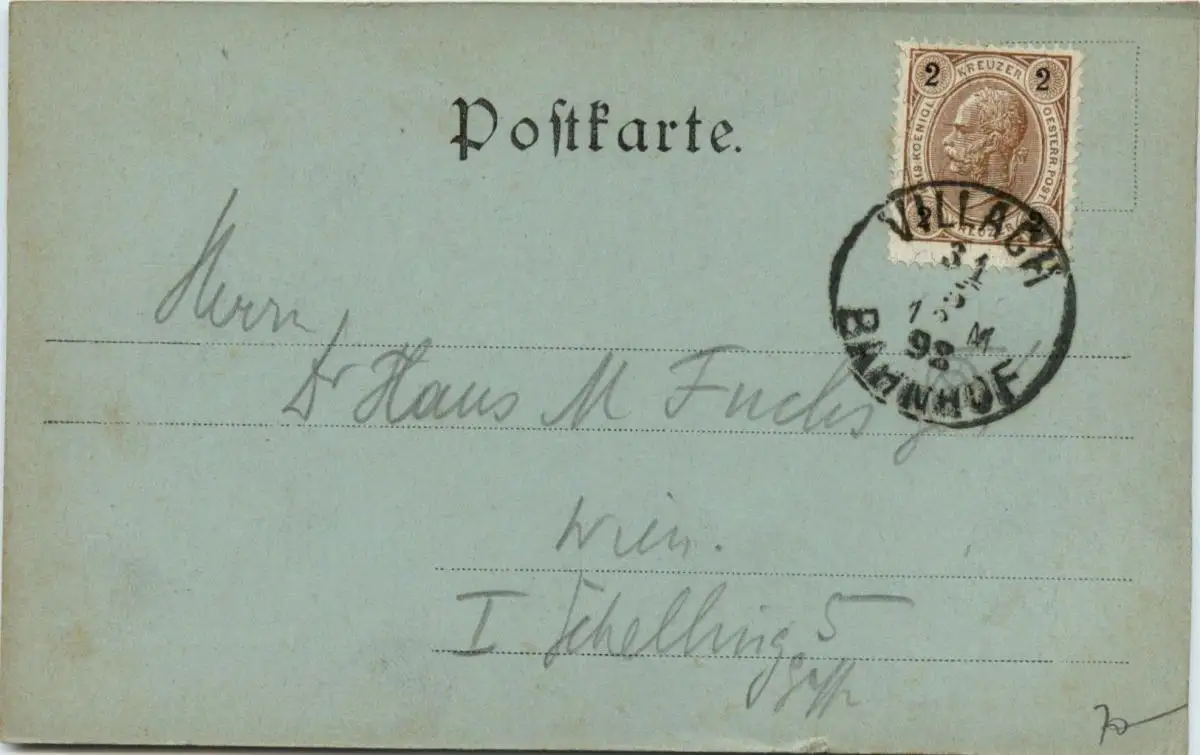 Postkarte.
2 KREUZER 2
KAIS. KOENIGL. OESTERR. POST
2 KREUZER 2
VILLACH
31
98
BAHNHOF
Herrn
Dr Hans M Fuchs
Wien.
I Schelling 5
gasse